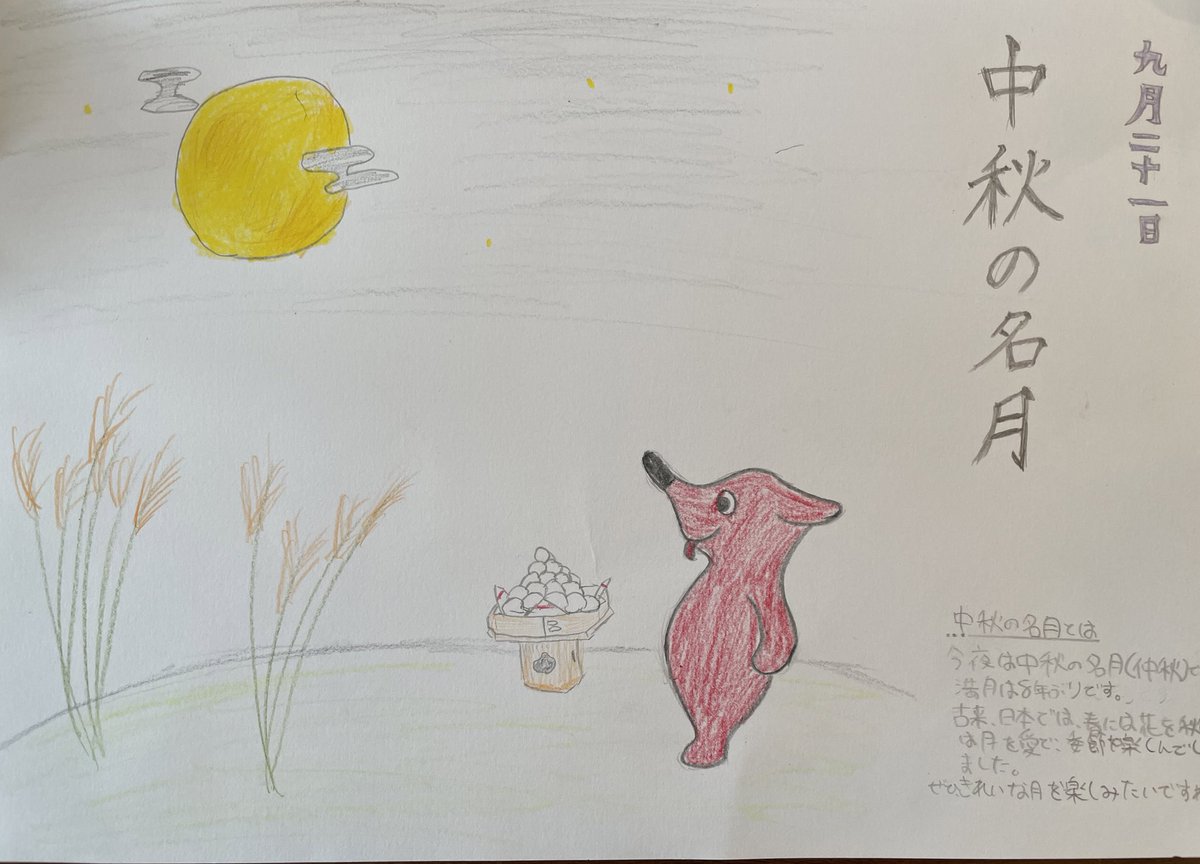 九月二十一日
中秋の名月
中秋の名月とは
今夜は中秋の名月(仲秋)で
満月は8年ぶりです。
古来、日本では、春には花を秋
は月を愛で、季節を楽しんでし
ました。
ぜひ、きれいな月を楽しみたいですね